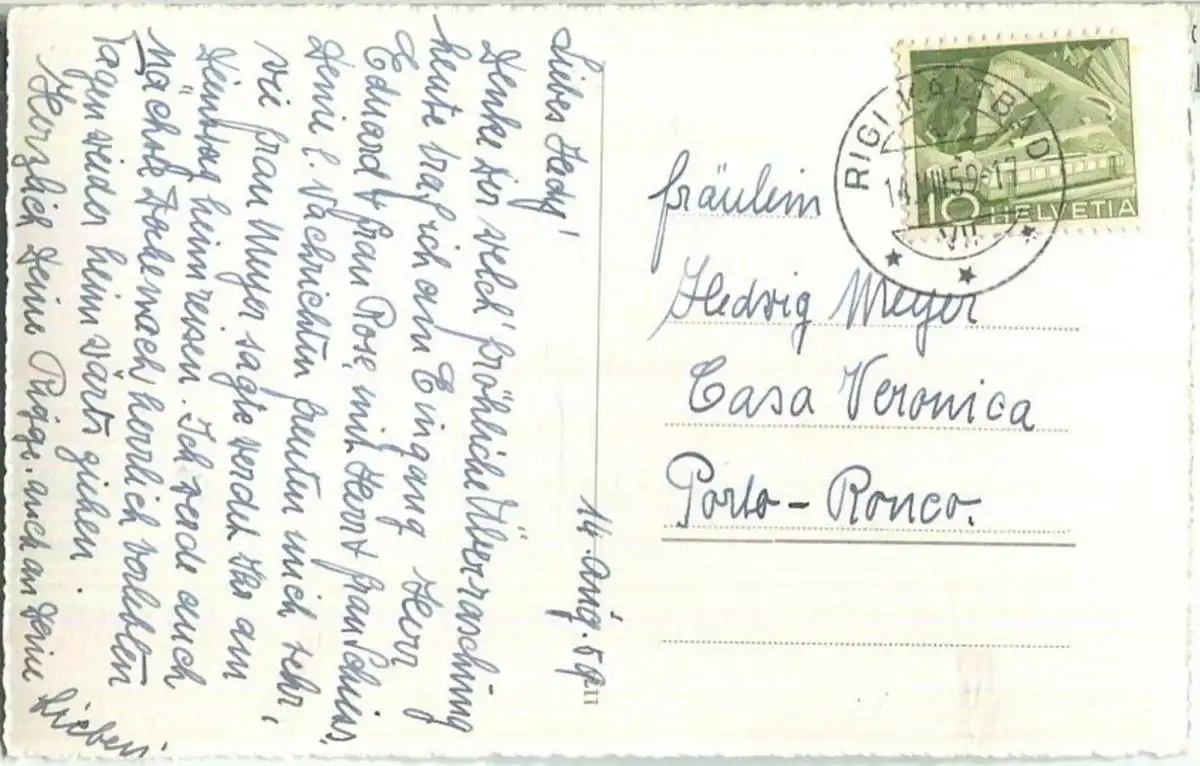 14. Aug. 59
Liebes Hedy!
Denke Dir welch' fröhliche Überraschung
heute traf ich am Eingang Herr
Eduard & frau Rose, mit Herr & frau
Deine l. Nachrichten freuten mich sehr,
wie frau Meyer sagte werdet Ihr am
Dienstag heimreisen. Ich werde auch
Nächste Woche nach herrlich verlebten
Tagen wieder heimwärts ziehen.
Herzlich Deine auch an Deine Lieben.
fräulein
Hedwig Meyer
Casa Veronica
Porto-Ronco.
RIGI KALTBAD
14.VIII.59-17
VII
10 HELVETIA